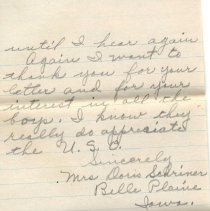 until I hear again
Again I want to
thank you for your
letter and for your
interest in all the
boys. I know they
really do appreciate
the U.S.O.
Sincerely
Mrs Doris Schriner
Belle Plaine
Iowa.